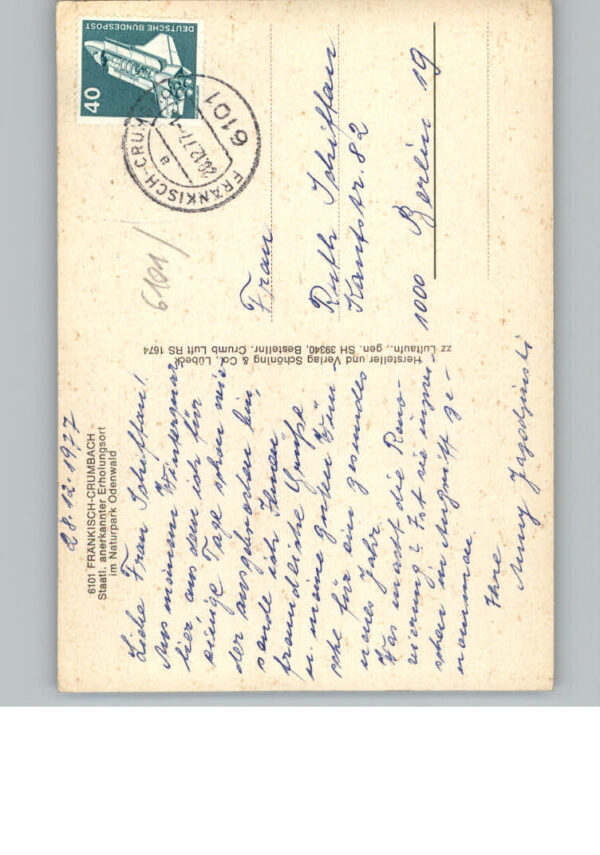 28.12.1977
6101 FRÄNKISCH-CRUMBACH
Staatl. anerkannter Erholungsort
im Naturpark Odenwald
Liebe Frau Schiffan!
Aus meinem Winterquar-
tier, aus dem ich für
einige Tage schon wie-
der ausgebrochen bin,
sende ich Ihnen
freundliche Grüße
u. meine guten Wün-
sche für ein gesundes
neues Jahr.
Was macht die Reno-
vierung? Ist sie inzwi-
schen in Angriff ge-
nommen
Ihre
Anny Jagodzinski
Hersteller und Verlag Schöning & Co., Lübeck
zz Luftaufn., gen. SH 39340, Bestellnr. Crumb Luft RS 1674
DEUTSCHE BUNDESPOST
40
6101
FRÄNKISCH-CRUMB
a
28.12.77
6101/
Frau
Ruth Schiffan
Kantstr. 82
1000 Berlin 19